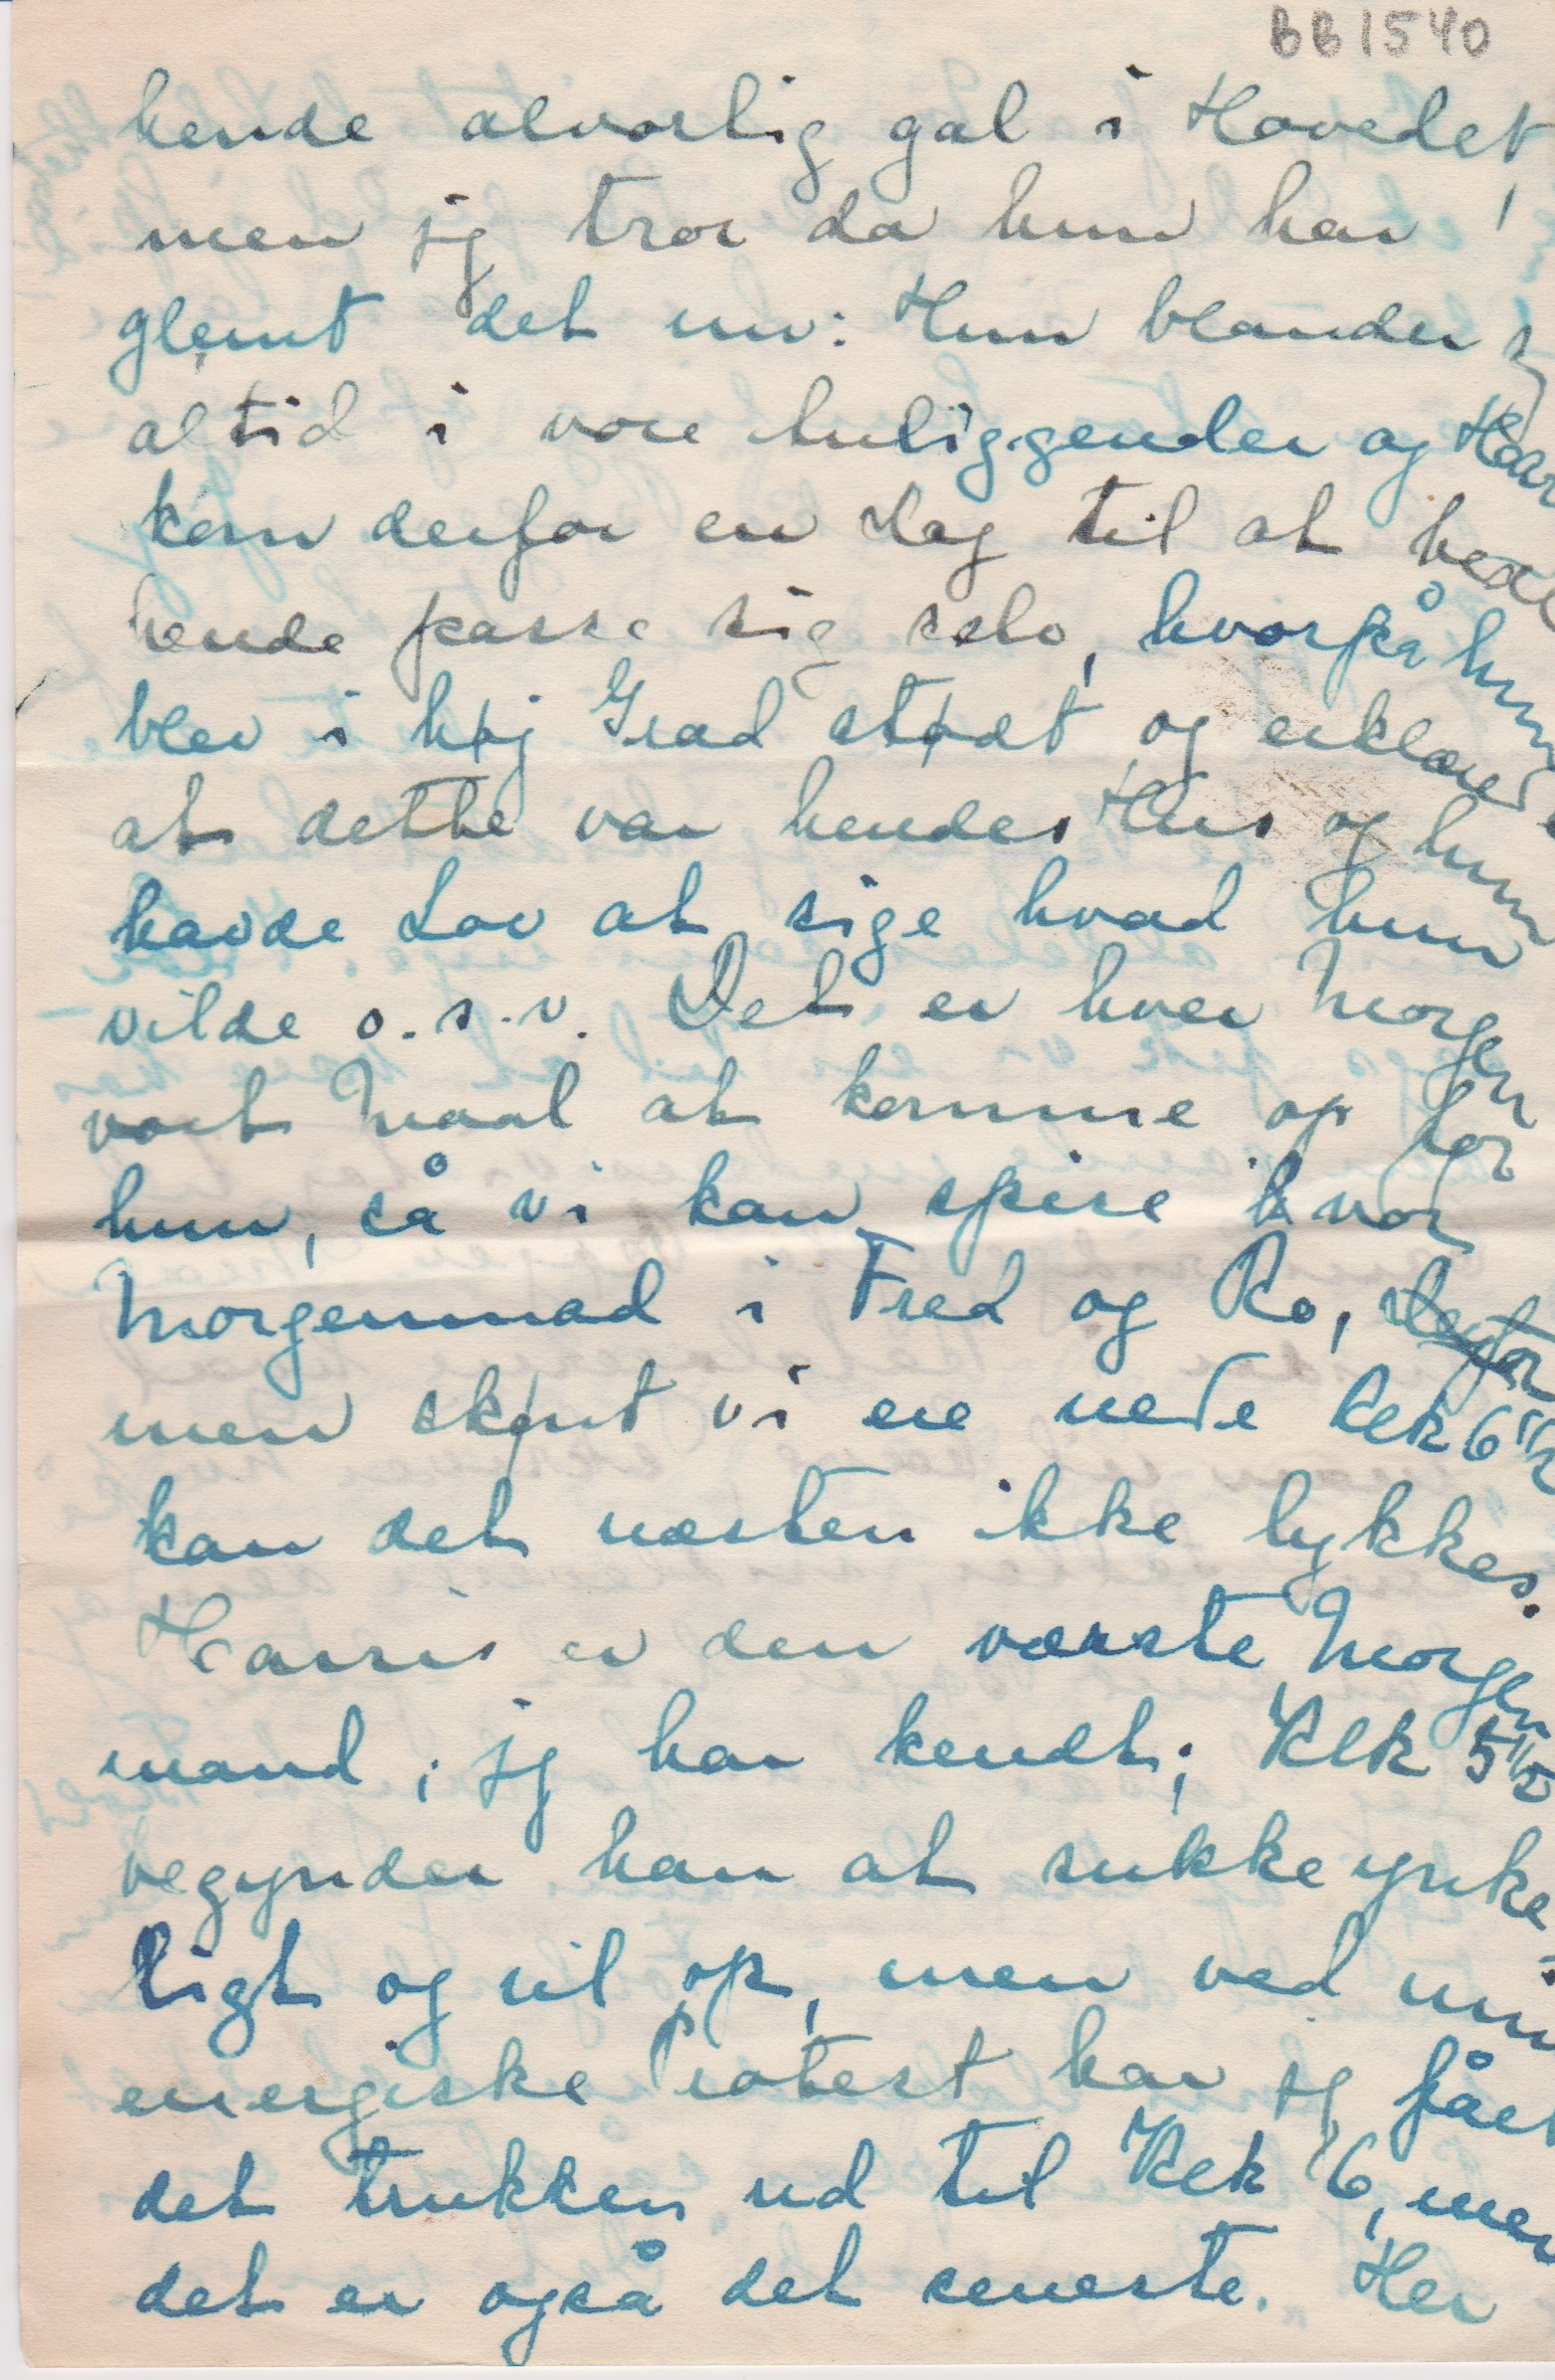 BB1540
hende alvorlig gal i Hovedet,
men jeg tror da hun har
glemt det nu: Hun blander sig
altid i vore Anliggender og Harris
kom derfor en Dag til at bede
hende passe sig selv, hvorpå hun
blev i høj Grad stødt, og erklærede
at dette var hendes Hus og hun
havde Lov at sige hvad hun
vilde o.s.v. Det er hver Morgen
vort Maal at komme op før
hun, så vi kan spise vor
Morgenmad i Fred og Ro, Derfor
men skønt vi er nede Klk 6 1/2
kan det næsten ikke lykkes.
Harris er den værste Morgen
mand, jeg har kendt; Klk 5 1/2
begynder han at sukke ynke-
ligt og vil op, men ved min
energiske Protest har jeg fået
det trukken ud til Klk 6, men
det er også det seneste. Her